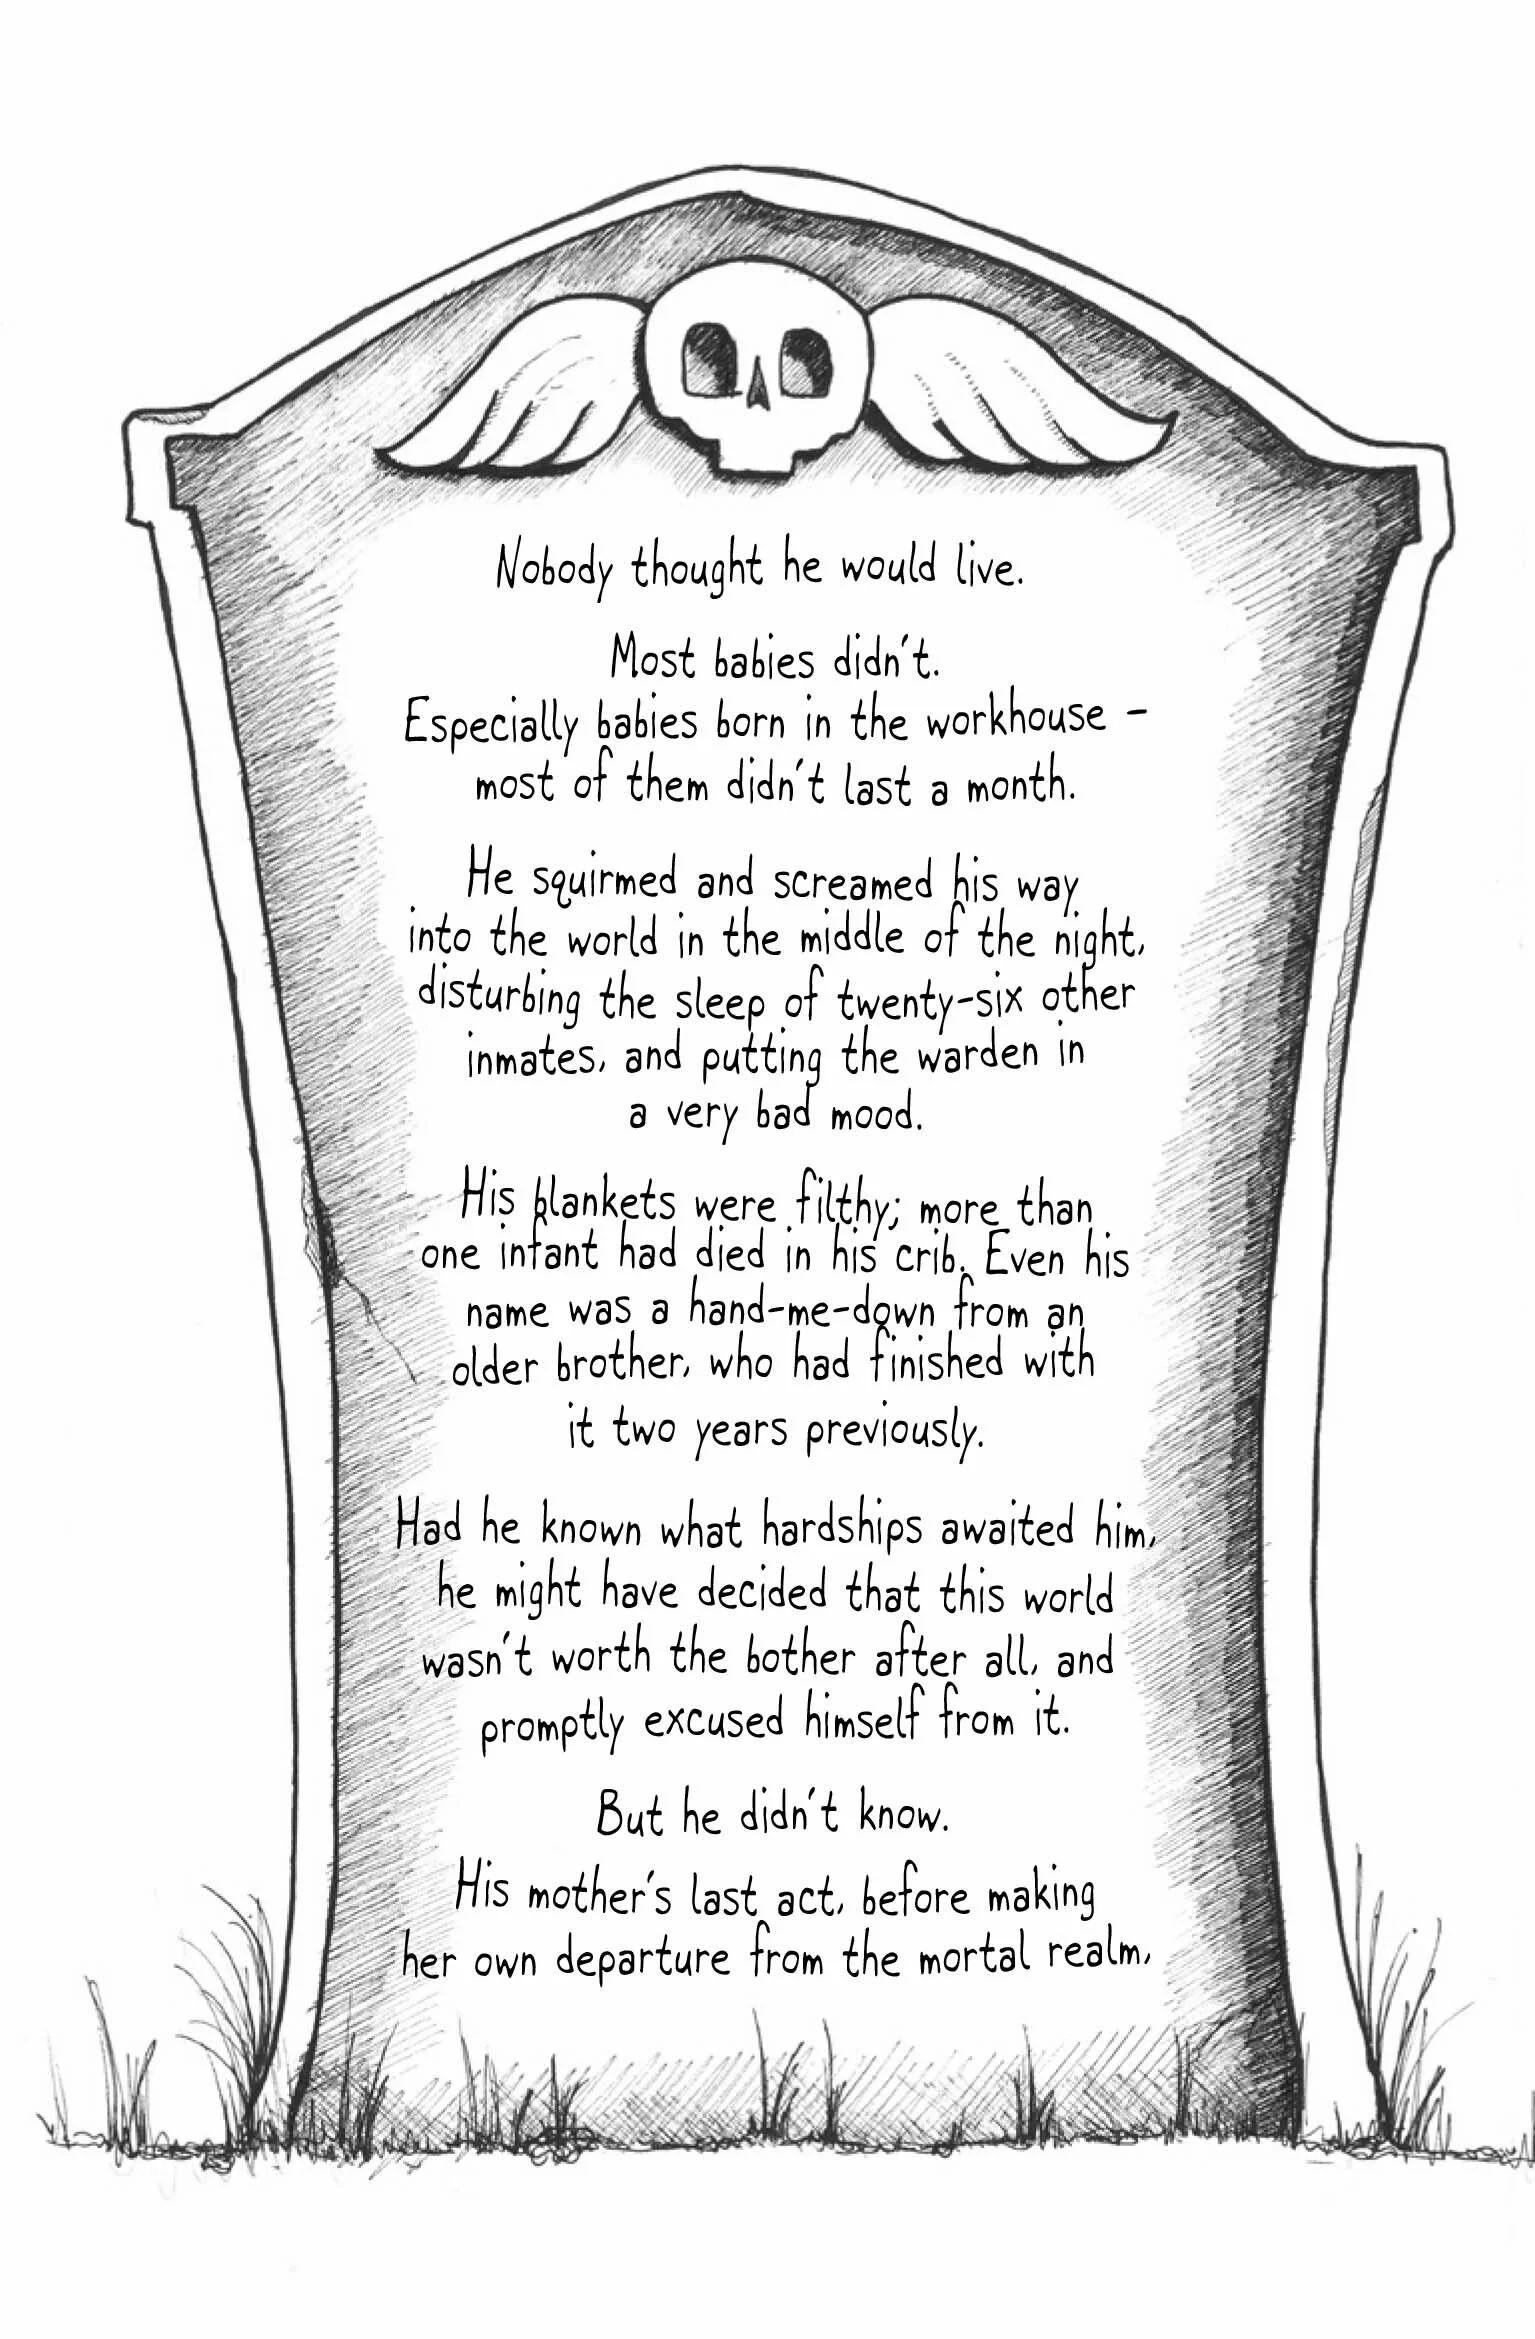 Nobody thought he would live.
Most babies didn't.
Especially babies born in the workhouse –
most of them didn't last a month.
He squirmed and screamed his way
into the world in the middle of the night,
disturbing the sleep of twenty-six other
inmates, and putting the warden in
a very bad mood.
His blankets were filthy; more than
one infant had died in his crib. Even his
name was a hand-me-down from an
older brother, who had finished with
it two years previously.
Had he known what hardships awaited him,
he might have decided that this world
wasn't worth the bother after all, and
promptly excused himself from it.
But he didn't know.
His mother's last act, before making
her own departure from the mortal realm,